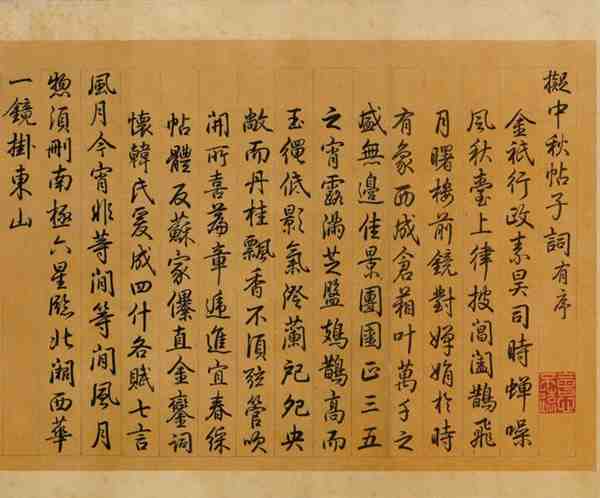 擬中秋帖子詞有序
金祇行政素昊司時蟬噪
風秋臺上律披閶闔鵲飛
月曙樓前鏡對嬋娟於時
有象西成倉箱叶萬千之
盛無邊佳景團圓正三五
之宵露滿芝盤鳷鵲高而
玉繩低影氣澄蘭戺夗央
敞而丹桂飄香不須弦管吹
開所喜篇章遞進宜春綵
帖體及蘇家儤直金鑾詞
懷韓氏爰成四什各賦七言
風月今宵非等閒等閒風月
惣須刪南極六星臨北闕西華
一鏡掛東山